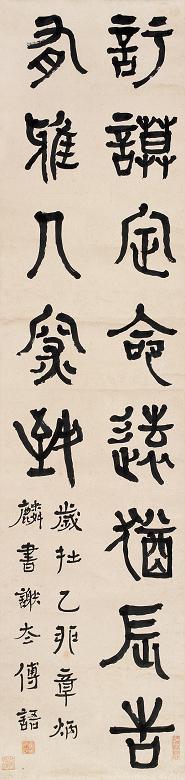 訏謨定命遠猶辰告
有雅人深致
歲在乙亥章炳
麟書謝太傅語